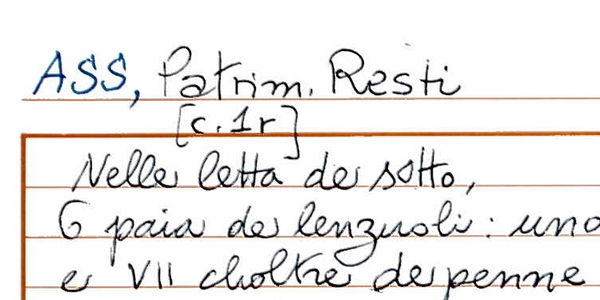 ASS, Patrim. Resti
[c. 1r]
Nelle letta de sotto,
6 paia de lenzuoli: uno
e VII choltre de penne